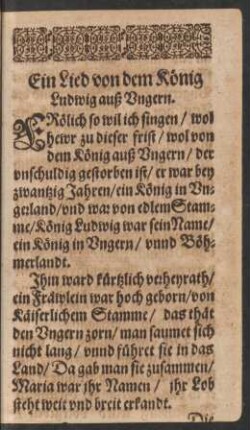 Ein Lied von dem König
Ludwig auß Vngern.
FRölich so wil ich singen / wol
hewr zu dieser frist / wol von
dem König auß Vngern / der
vnschuldig gestorben ist / er war bey
zwantzig Jahren / ein König in Vn-
gerland / vnd war von edlem Stam-
me / König Ludwig war sein Name /
ein König in Vngern / vnnd Böh-
merlandt.
Ihm ward kürtzlich verheyrath /
ein Fräwlein war hoch geborn / von
Käiserlichem Stamme / das thät
den Vngern zorn / man saumet sich
nicht lang / vnnd führet sie in das
Land / Da gab man sie zusammen /
Maria war ihr Namen / ihr Lob
steht weit vnd breit erkandt.
Die